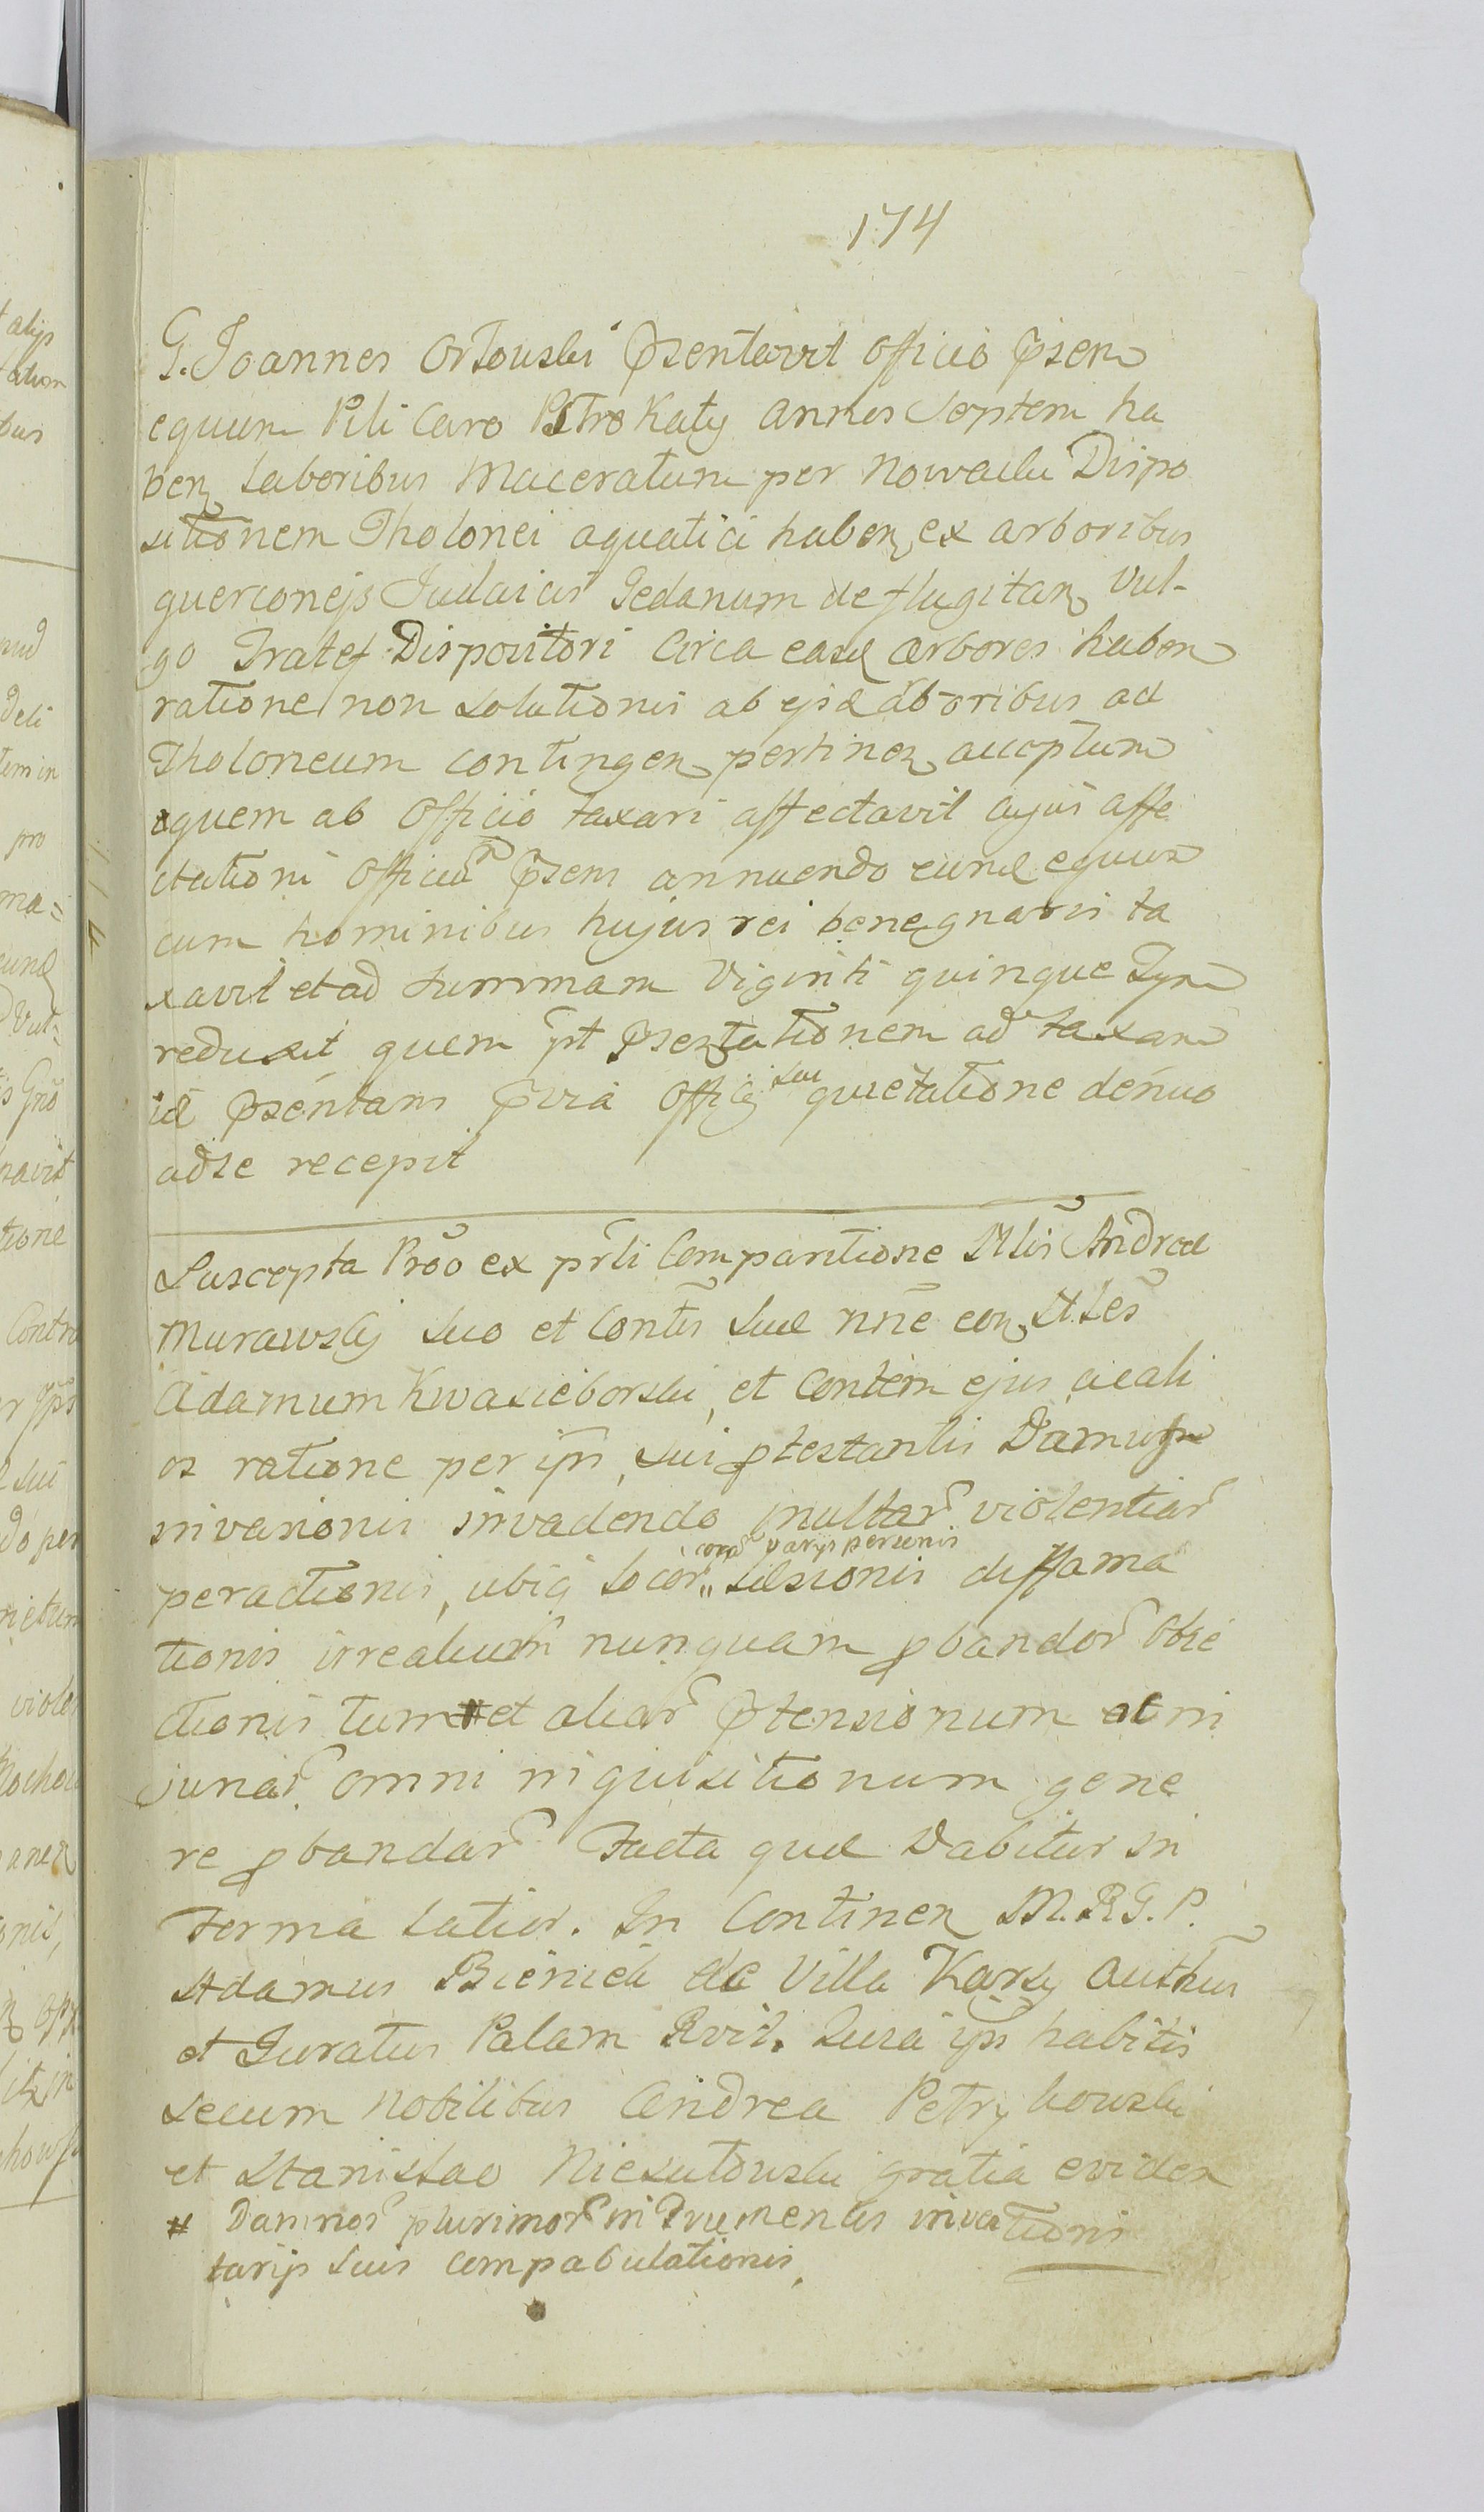 174
G. Joannes Ortouski p̃sentavit officio p̃sem
equum Pili Caro Pstrokaty annos septem ha
ben laboribus maceratum per Nowacki Dispo
sitionem Tholonei aquatici haben ex arboribus
querconejs Judaicis Gedanum deflugitan Vul-
go Tratef Dispositori Circa easd arbores haben
ratione non solutionis ab ejsd arboribus ad
Tholoneum contingen pertinen acceptum
quem ab officio taxari affectavit cujus affe
ctationi officium p̃sens annuendo eund equum
cum hominibus hujus rei bene gnaris ta
xavit et ad summam Viginti quinque Tyn
reduxit quem p̃t p̃sentationem ad taxam
id p̃sentans p̃via offi sui quietatione denuo
ad se recepit
Suscepta Pr̃o ex pr̃li Comparitione Mlis Andreæ
Murawskj suo et Contis suæ nñe con Mles
Adamum Kwasieborski, et Contem ejus acali
os ratione per ip̃s, sui ptestantis Damus
invasionis invadendo multar violentiar
peractionis, ubiq locor" læsionis diffama
cora varijs personis
tionis irrealium nunquam pbandor Obie
ctionis tum # et aliar p̃tensionum at in
juriar omni inquisitionum gene
re pbandar Facta quæ Dabitur in
Forma latior. In Continen M. R G. P.
Adamus Bieniek de Villa Karsy authus
et Juratus Palam Rvit. Quia ip̃s habitis
secum Nobilibus Andrea Petrykowski
et Stanislao Niesułouski gratia eviden
tionis
# Damnor plurimor in Frumentis inven
tarijs suis compabulationis,